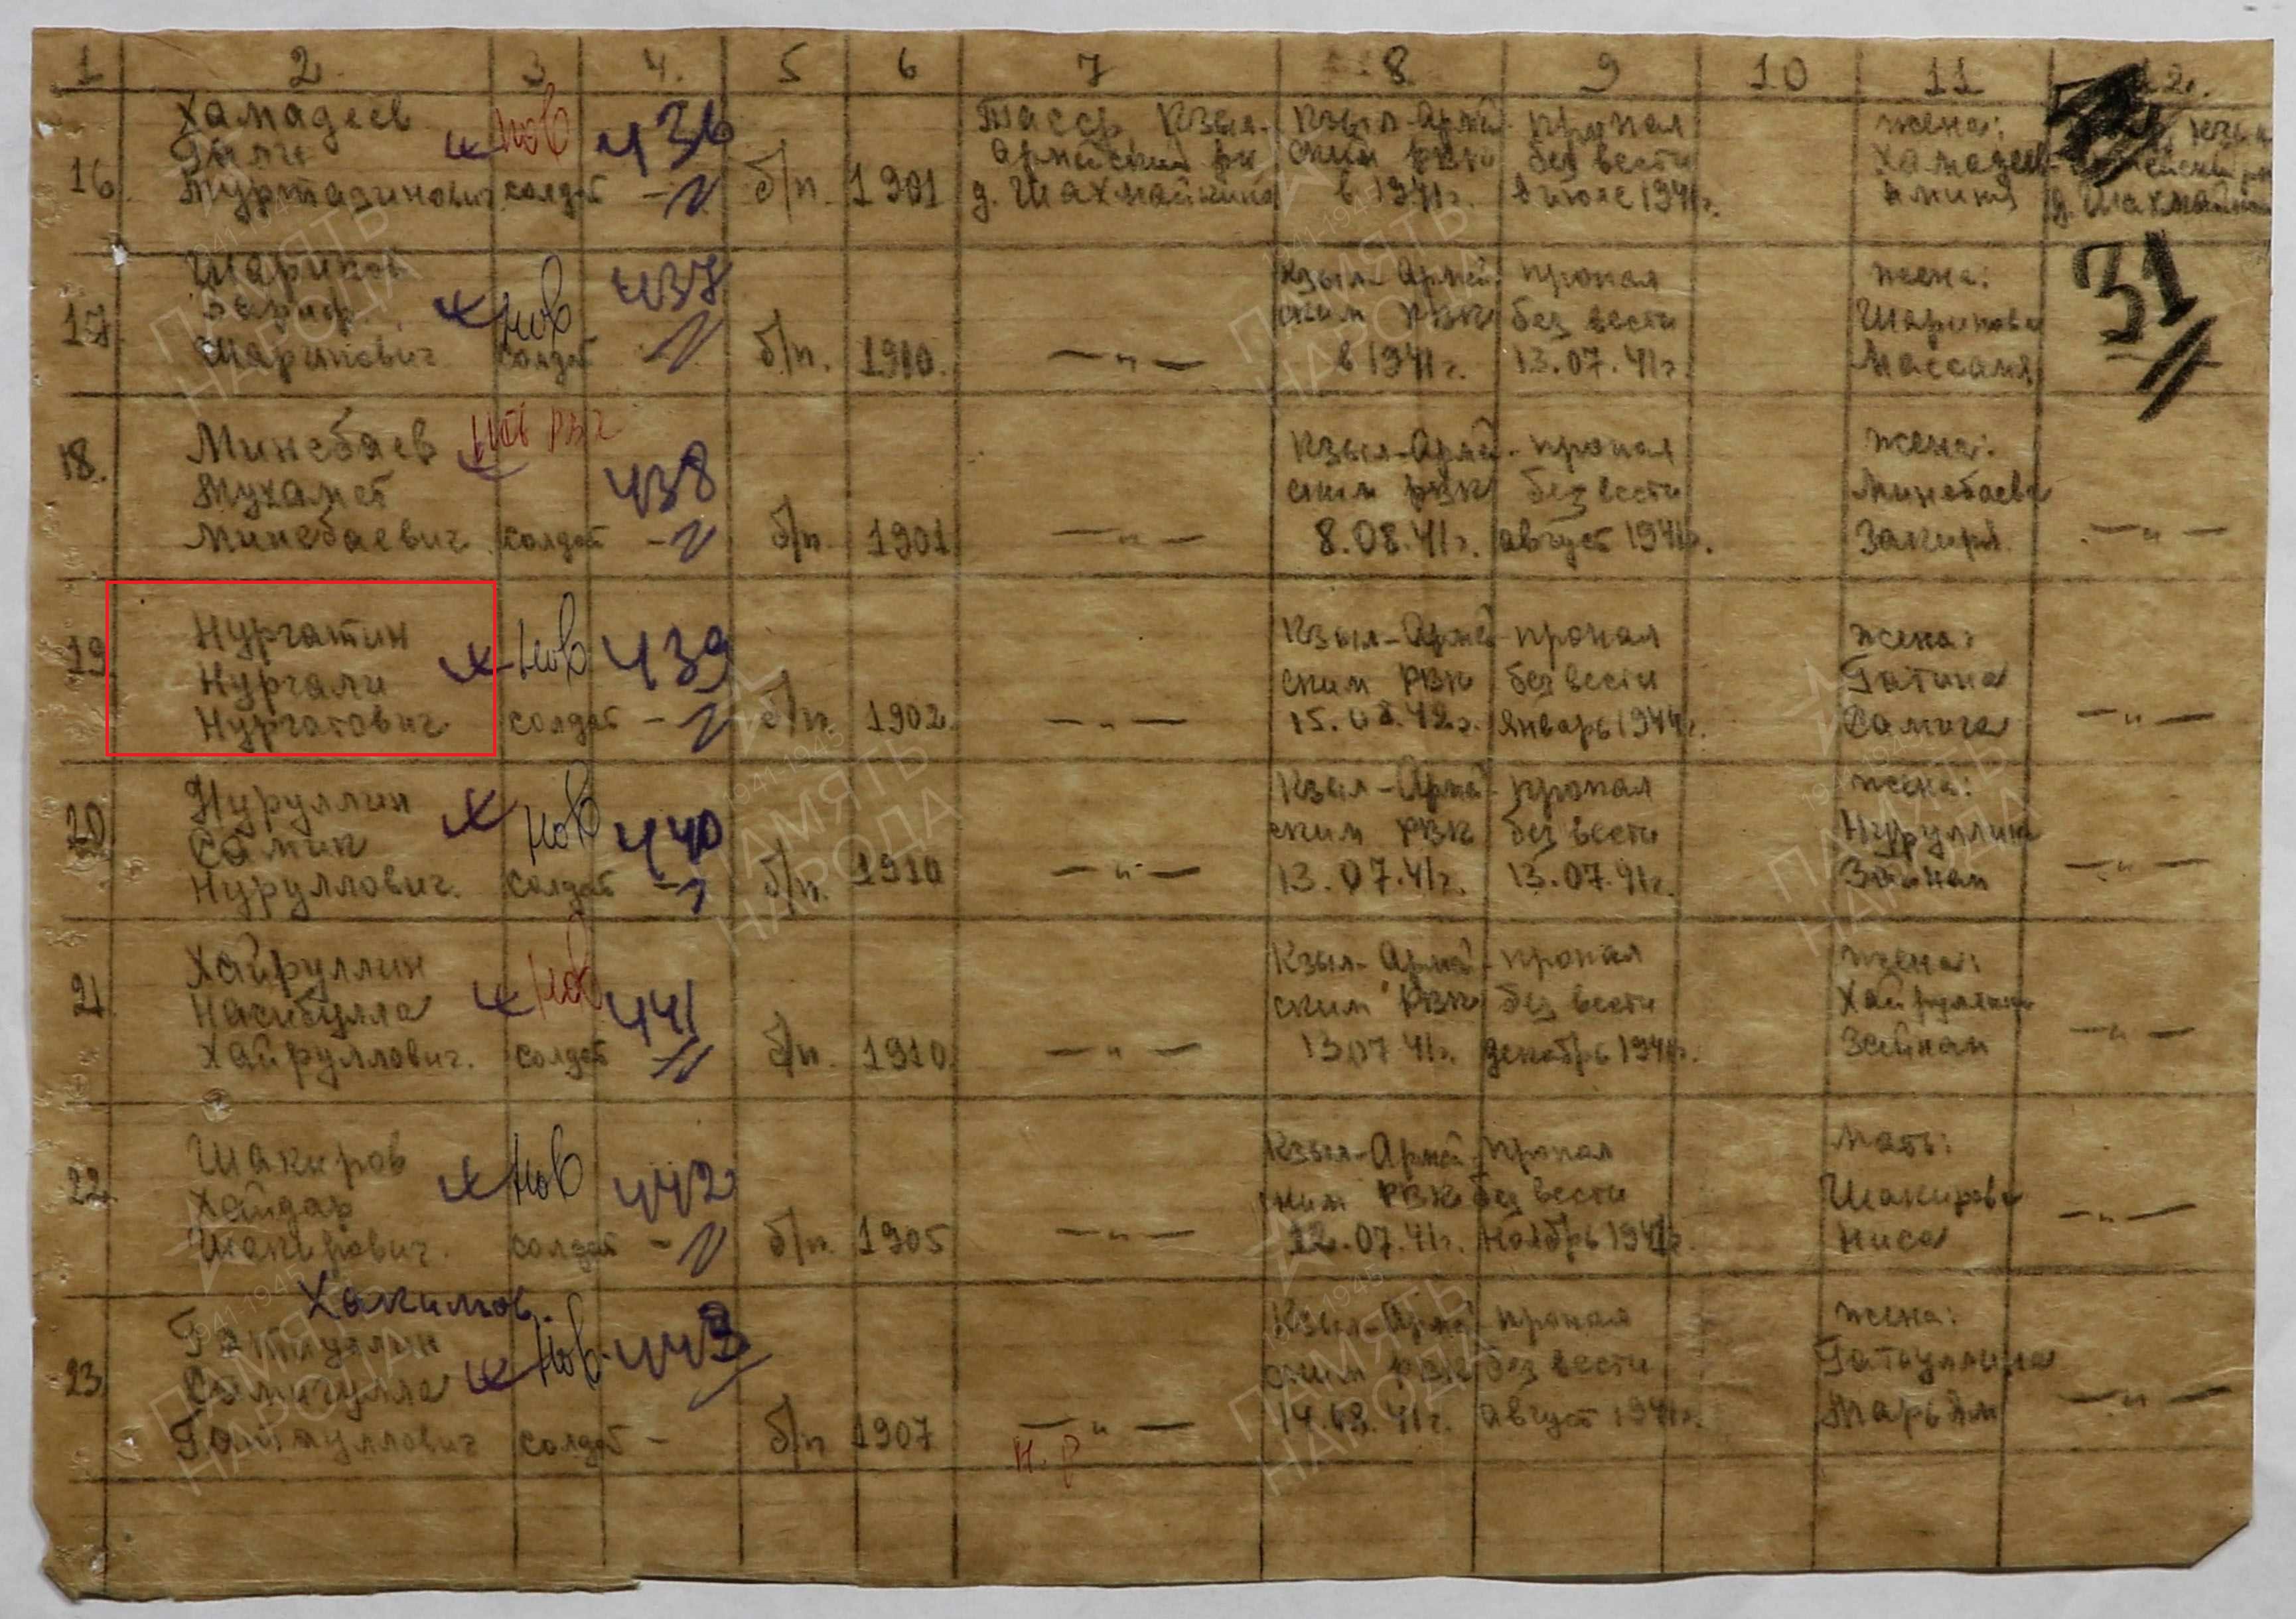 1 2. 3 4. 5 6 7 8 9 10 11 12.
Хамадеев нов 436 Тасср Кзыл- Кзыл-Армей- пропал жена:
Гали Армейский рн ским РВК без вести Хамадеев
16. Муртазинович солдат - б/п. 1901 д. Шахмайкино в 1941г. в июле 1941г. Амина д. Шахмайкино
Шарипов нов 437 Кзыл-Армей- пропал жена: 31
ским РВК без вести Шарипова
17. Шарипович солдат б/п. 1910. — " — в 1941г. 13.07.41г.
Минебаев 438 Кзыл-Армей- пропал жена:
18. Мухамет ским РВК без вести Минебаева
Минебаевич солдат - б/п. 1901 — " — 8.08.41г. август 1941г. Закиря — " —
Нургатин нов 439 Кзыл-Армей- пропал жена:
19 Нургали ским РВК без вести Гатина
Нургатович солдат - б/п. 1902. — " — 15.08.42г. январь 1944г. Самига — " —
Нуруллин нов 440 Кзыл-Армей- пропал жена:
20 Самик ским РВК без вести Нуруллина
Нуруллович. солдат - б/п. 1910 — " — 13.07.41г. 13.07.41г. — " —
Хайруллин нов 441 Кзыл-Армей- пропал жена:
21. Насибулла ским РВК без вести Хайруллина
Хайруллович. солдат б/п. 1910. — " — 13.07.41г. декабрь 1941г. Зайнап — " —
Шакиров нов 442 Кзыл-Армей- пропал мать:
22. Хайдар ским РВК без вести Шакирова
Шакирович. солдат - б/п. 1905 — " — 12.07.41г. ноябрь 1941г. Ниса — " —
Хакимов.
Гатауллин нов. 443 Кзыл-Армей- пропал жена:
23. Самигулла ским РВК без вести Гатауллина
солдат - б/п 1907 — " — 14.08.41г. август 1941г. Марьям — " —
Н.Р
1941-1945
ПАМЯТЬ
НАРОДА